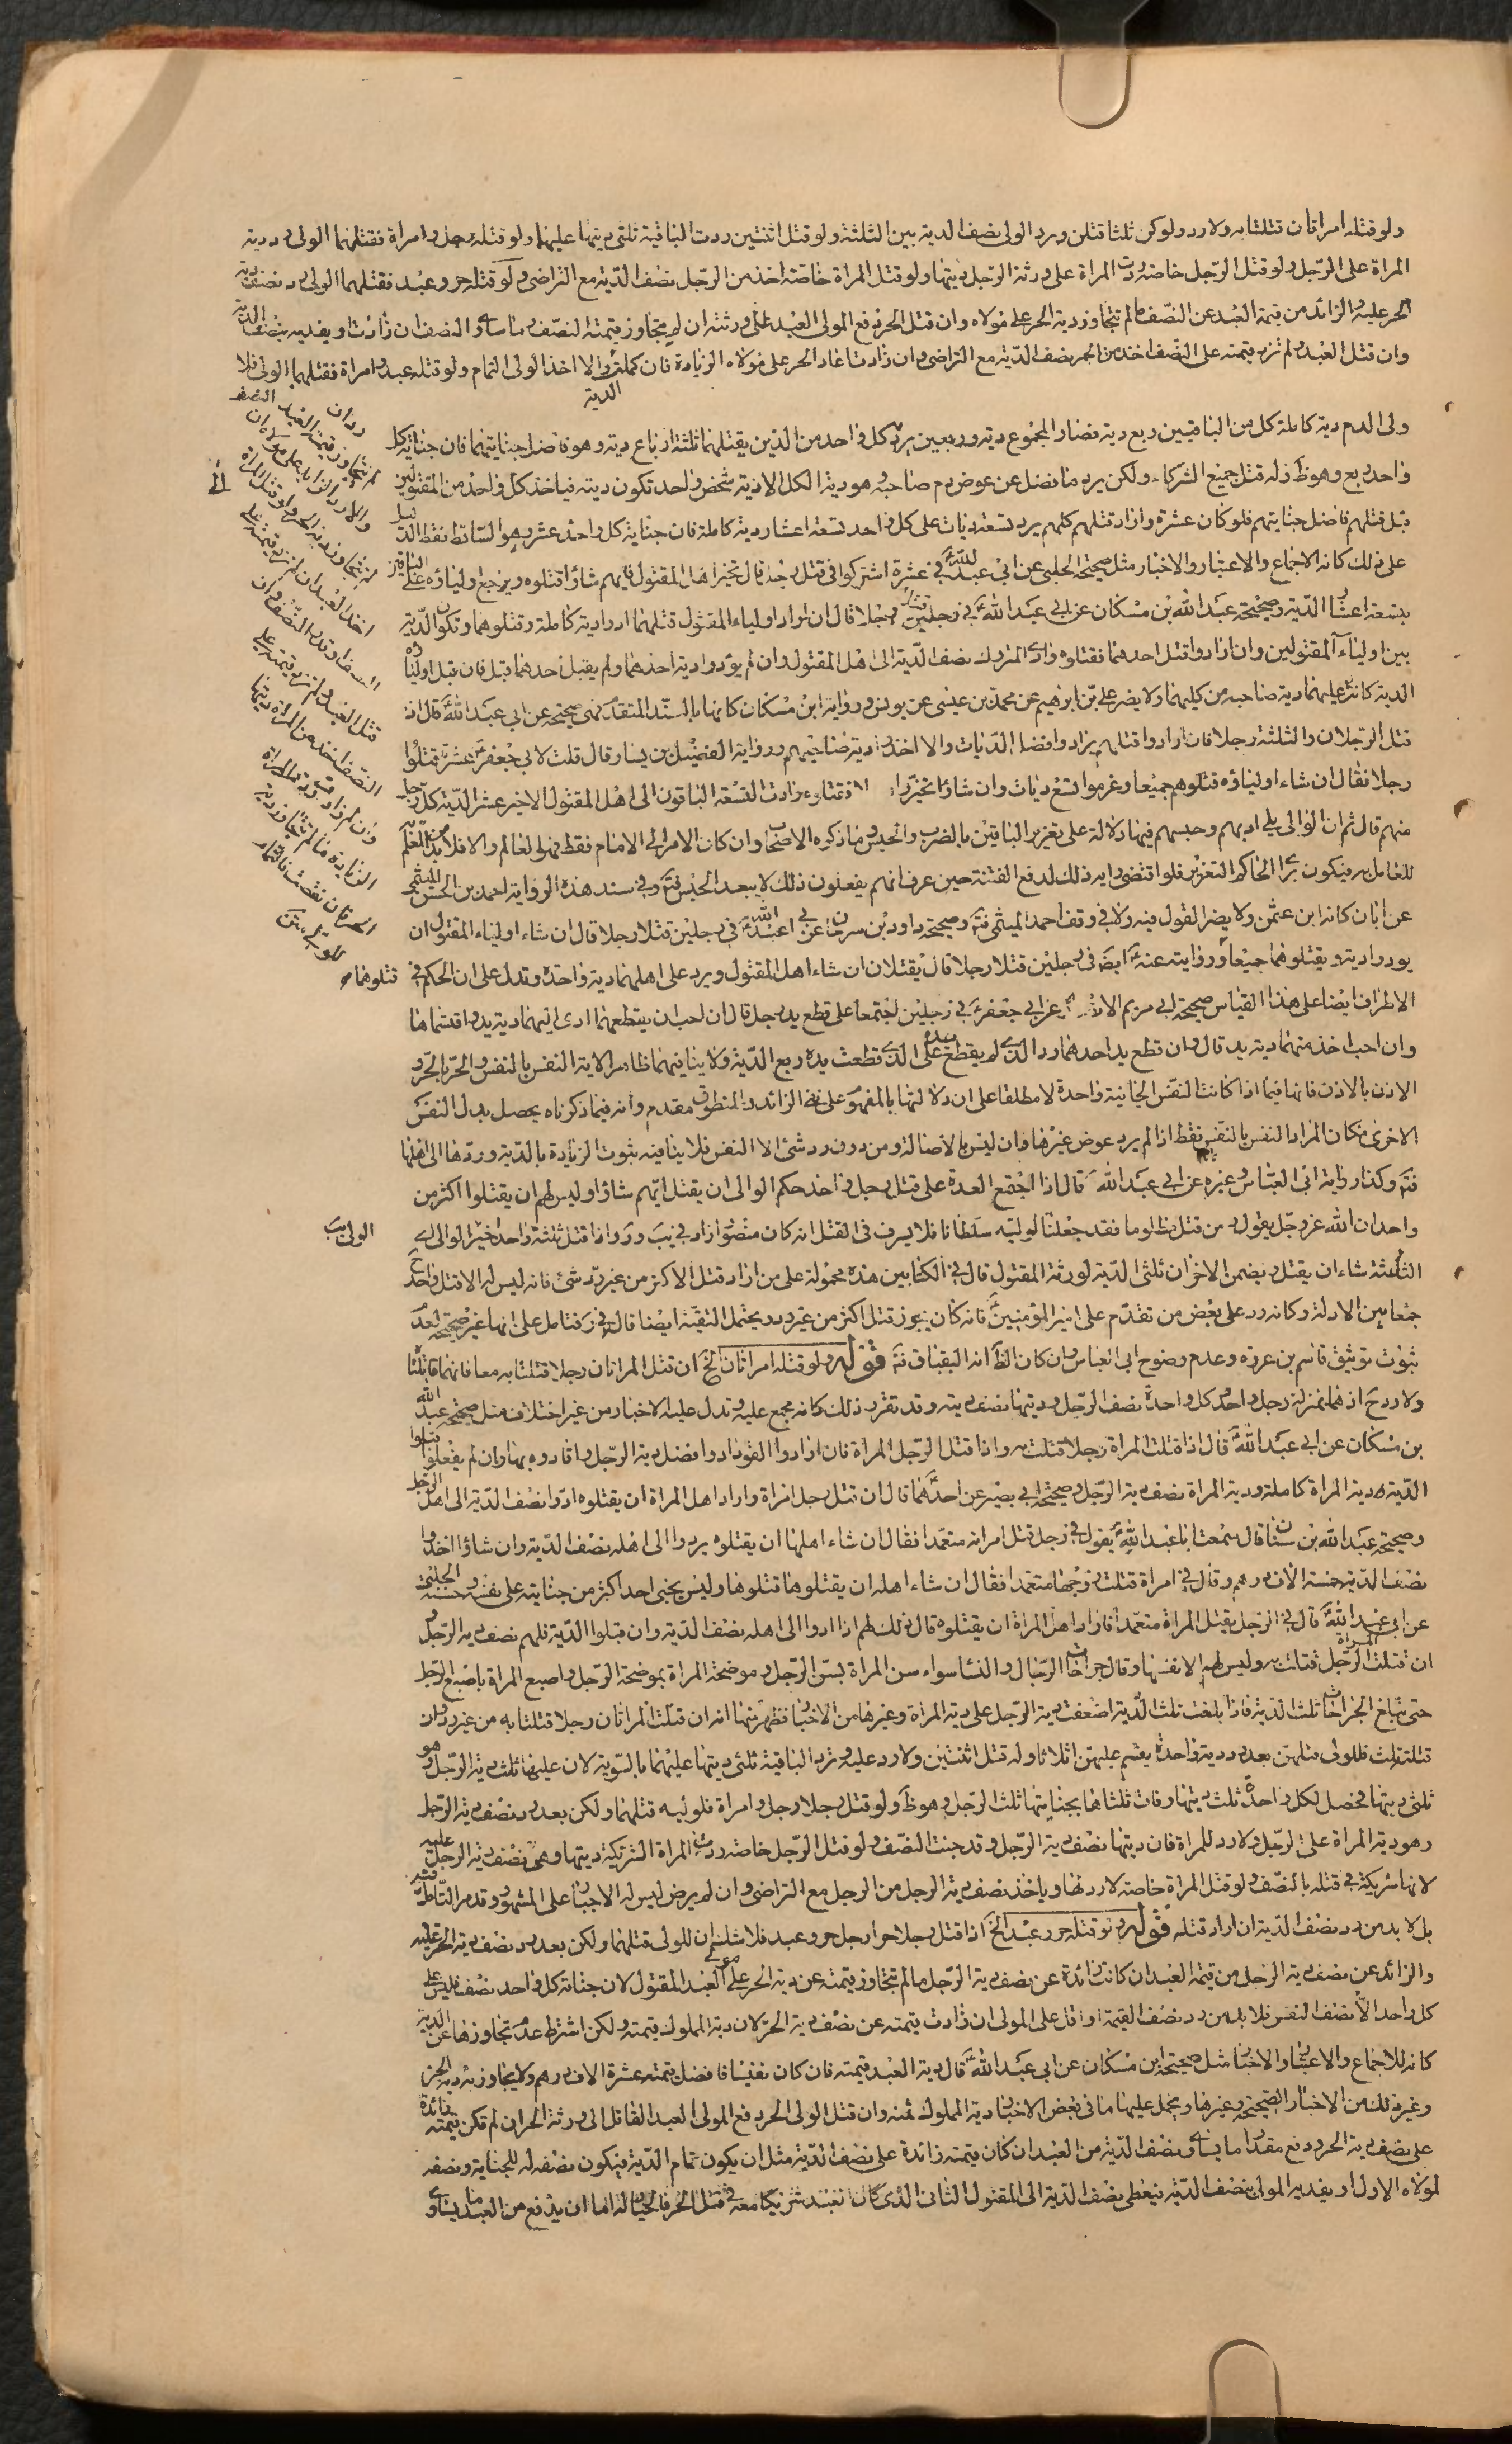 ولو قتله امراتان قتلتا به ولا رد ولو كن ثلثا قتلن ورد الولى نصف الدية بين الثلثة ولو قتل اثنتين ردت الباقية ثلثى ديتها عليهما ولو قتله رجل وامراة فقتلهما الولى رد دية
المراة على الرجل ولو قتل الرجل خاصة ردت المراة على ورثة الرجل ديتها ولو قتل المراة خاصة اخذ من الرجل نصف الدية مع التراضى ولو قتله حر وعبد فقتلهما الولى رد نصف دية
الحر عليه والزائد من قيمة العبد عن النصف ما لم تتجاوز دية الحر على مولاه وان قتل الحر دفع المولى العبد على ورثته ان لم يتجاوز قيمته النصف او ما ساوى النصف ان زادت او يفديه بنصف الدية
وان قتل العبد ولم تزد قيمته على النصف اخذ من الحر نصف الدية مع التراضى وان زادت اعاد الحر على مولاه الزيادة فان كملت الدية والا اخذ الولى التمام ولو قتله عبد وامراة فقتلهما الولى فلا
ولى الدم دية كاملة كل من الباقيين ربع دية فصار المجموع دية وربعين يرد كل واحد من الذين يقتلهما ثلثة ارباع دية وهو فاضل جنايتهما فان جناية كل
واحد ربع وهو ظ وله قتل جميع الشركاء ولكن يرد ما فضل عن عوض دم صاحبه وهو دية الكل الا دية شخص واحد تكون ديته فياخذ كل واحد من المقتولين
قبل قتلهم فاضل جنايتهم فلو كان عشرة واراد قتلهم كلهم يرد تسعة ديات على كل واحد تسعة اعشار دية كاملة فان جناية كل واحد عشر وهو الساقط فقط الد ليل
على ذلك كانه الاجماع والاعتبار والاخبار مثل صحيحة الحلبى عن ابى عبد الله ع فى عشرة اشتركوا فى قتل رجل قال تخير اهل المقتول فايهم شاؤا قتلوه ويرجع اولياؤه على الباقين
بتسعة اعشار الدية وصحيحة عبد الله بن مسكان عن ابى عبد الله ع فى رجلين قتلا رجلا قال ان اراد اولياء المقتول قتلهما ادوا دية كاملة وقتلوهما وتكون الدية
بين اولياء المقتولين وان ارادوا قتل احدهما فقتلوه وادى المتروك نصف الدية الى اهل المقتول وان لم يؤدوا دية احدهما ولم يقبل احدهما قبل فان قبل اولياؤه
الدية كانت عليهما دية صاحبه من كليهما ولا يضر على بن ابرهيم عن محمد بن عيسى عن يونس ورواية ابن مسكان كانها بالسند المتقدم فهى صحيحة عن ابى عبد الله ع قال اذا
قتل الرجلان والثلثة رجلا فان ارادوا قتلهم ترادوا فضل الديات والا اخذوا دية صاحبهم ورواية الفضيل بن يسار قال قلت لابى جعفر ع عشرة قتلوا
رجلا فقال ان شاء اولياؤه قتلوهم جميعا وغرموا تسع ديات وان شاؤا تخيروا رجلا فقتلوه وادت التسعة الباقون الى اهل المقتول الاخير عشر الدية كل رجل
منهم قال ثم ان الوالى يلى ادبهم وحبسهم فيها دلالة على تعزير الباقين بالضرب والحبس وما ذكره الاصحاب وان كان الامر الى الامام فقط فهو العالم والا فلا بد من العلم
للعامل به فيكون براى الحاكم التعزير فلو اقتضى رايه ذلك لدفع الفتنة حين عرف انهم يفعلون ذلك لا يبعد الحبس فت وفى سند هذه الرواية احمد بن الحسن الميثمى
عن ابان كانه ابن عثمن ولا يضر القول فيه ولا فى وقف احمد الميثمى فت وصحيحة داود بن سرحان عن ابى عبد الله ع فى رجلين قتلا رجلا قال ان شاء اولياء المقتول ان
يودوا دية ويقتلوهما جميعا قتلوهما ورواية عنه ع ايضا فى رجلين قتلا رجلا قال يقتلان ان شاء اهل المقتول ويرد على اهلهما دية واحدة وتدل على ان الحكم فى
الاطراف ايضا على هذا القياس صحيحة ابى مريم الانصارى عن ابى جعفر ع فى رجلين اجتمعا على قطع يد رجل قال ان احب ان يقطعهما ادى اليهما دية يد واقتسماها
وان احب اخذ منهما دية يد قال وان قطع يد احدهما رد الذى لم يقطع يده على الذى قطعت يده ربع الدية ولا ينافيهما ظاهر الاية النفس بالنفس والحر بالحر و
الاذن بالاذن فانها فيما اذا كانت النفس الجانية واحدة لا مطلقا على ان دلالتها بالمفهوم على نفى الزائد والمنطوق مقدم وانه فيما ذكرناه يحصل بدل النفس
الاخرى فكان المراد النفس بالنفس فقط اذا لم يرد عوض غيرها وان ليس بالاصالة ومن دون رد شئ الا النفس فلا ينافيه ثبوت الزيادة بالدية وردها الى اهلها
فت وكذا رواية ابى العباس وغيره عن ابى عبد الله ع قال اذا اجتمع العدة على قتل رجل واحد حكم الوالى ان يقتل ايهم شاؤا وليس لهم ان يقتلوا اكثر من
واحد ان الله عز وجل يقول ومن قتل مظلوما فقد جعلنا لوليه سلطانا فلا يسرف فى القتل انه كان منصورا زاد فى يب واذا قتل ثلثة واحدا خير الوالى اى
الثلثة شاء ان يقتل ويضمن الاخران ثلثى الدية لورثة المقتول قال فى الكتابين هذه محمولة على من اراد قتل الاكثر من غير رد شئ فانه ليس له الا قتل واحد
جمعا بين الادلة وكانه رد على بعض من تقدم على امير المؤمنين ع فانه كان يجوز قتل اكثر من غير رد ويحتمل التقية ايضا قاله فى ر فتامل على انها غير صحيحة لعدم
ثبوت توثيق قاسم بن عروة وعدم وضوح ابى العباس وان كان الظ انه البقباق فت قوله ولو قتله امراتان الخ ان قتل المراتان رجلا قتلتا به معا فانهما قاتلتا
ولا رد ح اذ هما بمنزلة رجل واحد وكل واحدة نصف الرجل وديتها نصف ديته وقد تقرر ذلك وكانه مجمع عليه وتدل عليه الاخبار من غير اختلاف مثل صحيحة عبد الله
بن مسكان عن ابى عبد الله ع قال اذا قتلت المراة رجلا قتلت به واذا قتل الرجل المراة فان ارادوا القود ادوا فضل دية الرجل واقادوه بها وان لم يفعلوا قبلوا
الدية دية المراة كاملة ودية المراة نصف دية الرجل وصحيحة ابى بصير عن احدهما ع قال ان قتل رجل امراة واراد اهل المراة ان يقتلوه ادوا نصف الدية الى اهل الرجل
وصحيحة عبد الله بن سنان قال سمعت ابا عبد الله ع يقول فى رجل قتل امراته متعمدا فقال ان شاء اهلها ان يقتلوه يردوا الى اهله نصف الدية وان شاؤا اخذوا
نصف الدية خمسة الاف درهم وقال فى امراة قتلت زوجها متعمدا فقال ان شاء اهله ان يقتلوها قتلوها وليس يجنى احد اكثر من جنايته على نفسه وحسنة الحلبى
عن ابى عبد الله ع قال فى الرجل يقتل المراة متعمدا فاراد اهل المراة ان يقتلوه قال ذلك لهم اذا ادوا الى اهله نصف الدية وان قبلوا الدية فلهم نصف دية الرجل و
ان قتلت المراة الرجل قتلت به وليس لهم الا نفسها وقال جراحات الرجال والنساء سواء سن المراة بسن الرجل وموضحة المراة بموضحة الرجل واصبع المراة باصبع الرجل
حتى تبلغ الجراحات ثلث الدية فاذا بلغت ثلث الدية اضعفت دية الرجل على دية المراة وغيرها من الاخبار فظهر منها انه ان قتلت المراتان رجلا قتلتا به من غير رد وان
قتلته ثلث فللولى قتلهن بعد رد دية واحدة يقسم عليهن اثلاثا وله قتل اثنتين ولا رد عليه وترد الباقية ثلثى ديتها عليهما بالسوية لان عليها ثلث دية الرجل وهو
ثلثى ديتها فيحصل لكل واحدة ثلث ديتها وفات ثلثاها بجنايتها ثلث الرجل وهو ظ ولو قتل رجلا رجل وامراة فلوليه قتلهما ولكن بعد رد نصف دية الرجل
وهو دية المراة على الرجل ولا رد للمراة فان ديتها نصف دية الرجل وقد جنت النصف ولو قتل الرجل خاصة ردت المراة الشريكة ديتها وهى نصف دية الرجل عليه
لانها شريكة فى قتله بالنصف ولو قتل المراة خاصة لا رد لها وياخذ نصف دية الرجل من الرجل مع التراضى وان لم يرض ليس له الاجبار على المشهور وقد مر التامل فيه
بل لا بد من رد نصف الدية ان اراد قتله قوله ولو قتله حر وعبد الخ اذا قتل رجلا حرا رجل حر وعبد فلا شك ان للولى قتلهما ولكن بعد رد نصف دية الحر عليه
والزائد عن نصف دية الرجل من قيمة العبد ان كانت زائدة عن نصف دية الرجل ما لم تتجاوز قيمته عن دية الحر على مولى العبد المقتول لان جناية كل واحد نصف فليس على
كل واحد الا نصف النفس فلا بد من رد نصف القيمة او اقل على المولى ان زادت قيمته عن نصف دية الحر لان دية المملوك قيمته ولكن اشترط عدم تجاوزها عن الدية
كانه للاجماع والاعتبار والاخبار مثل صحيحة ابن مسكان عن ابى عبد الله ع قال دية العبد قيمته فان كان نفيسا فافضل قيمته عشرة الاف درهم ولا يتجاوز به دية الحر
وغير ذلك من الاخبار الصحيحة وغيرها ويحمل عليها ما فى بعض الاخبار دية المملوك ثمنه وان قتل الولى الحر دفع المولى العبد القاتل الى ورثة الحر ان لم تكن قيمته زائدة
على نصف دية الحر ودفع مقدار ما يساوى نصف الدية من العبد ان كان قيمته زائدة على نصف الدية مثل ان يكون تمام الدية فيكون نصفه له للجناية ونصفه
لمولاه الاول او يفديه المولى بنصف الدية فيعطى نصف الدية الى المقتول الثانى الذى كان العبد شريكا معه فى قتل الحر فالخيار له اما ان يدفع من العبد ما يساوى
رد ان
لم يتجاوز قيمة العبد النصف
والا رد الزايد على مولاه ان
لم يتجاوز دية الحر ولو قتل المراة
اخذ العبد ان لم تزد قيمته على
النصف او قدر النصف وان
قتل العبد ولم تزد قيمته على
النصف اخذ من المراة ديتها
وان زادت ردت المراة
الزيادة ما لم تتجاوز دية
الحر فان نقصت فالتمام
للولى متن
الولى يب